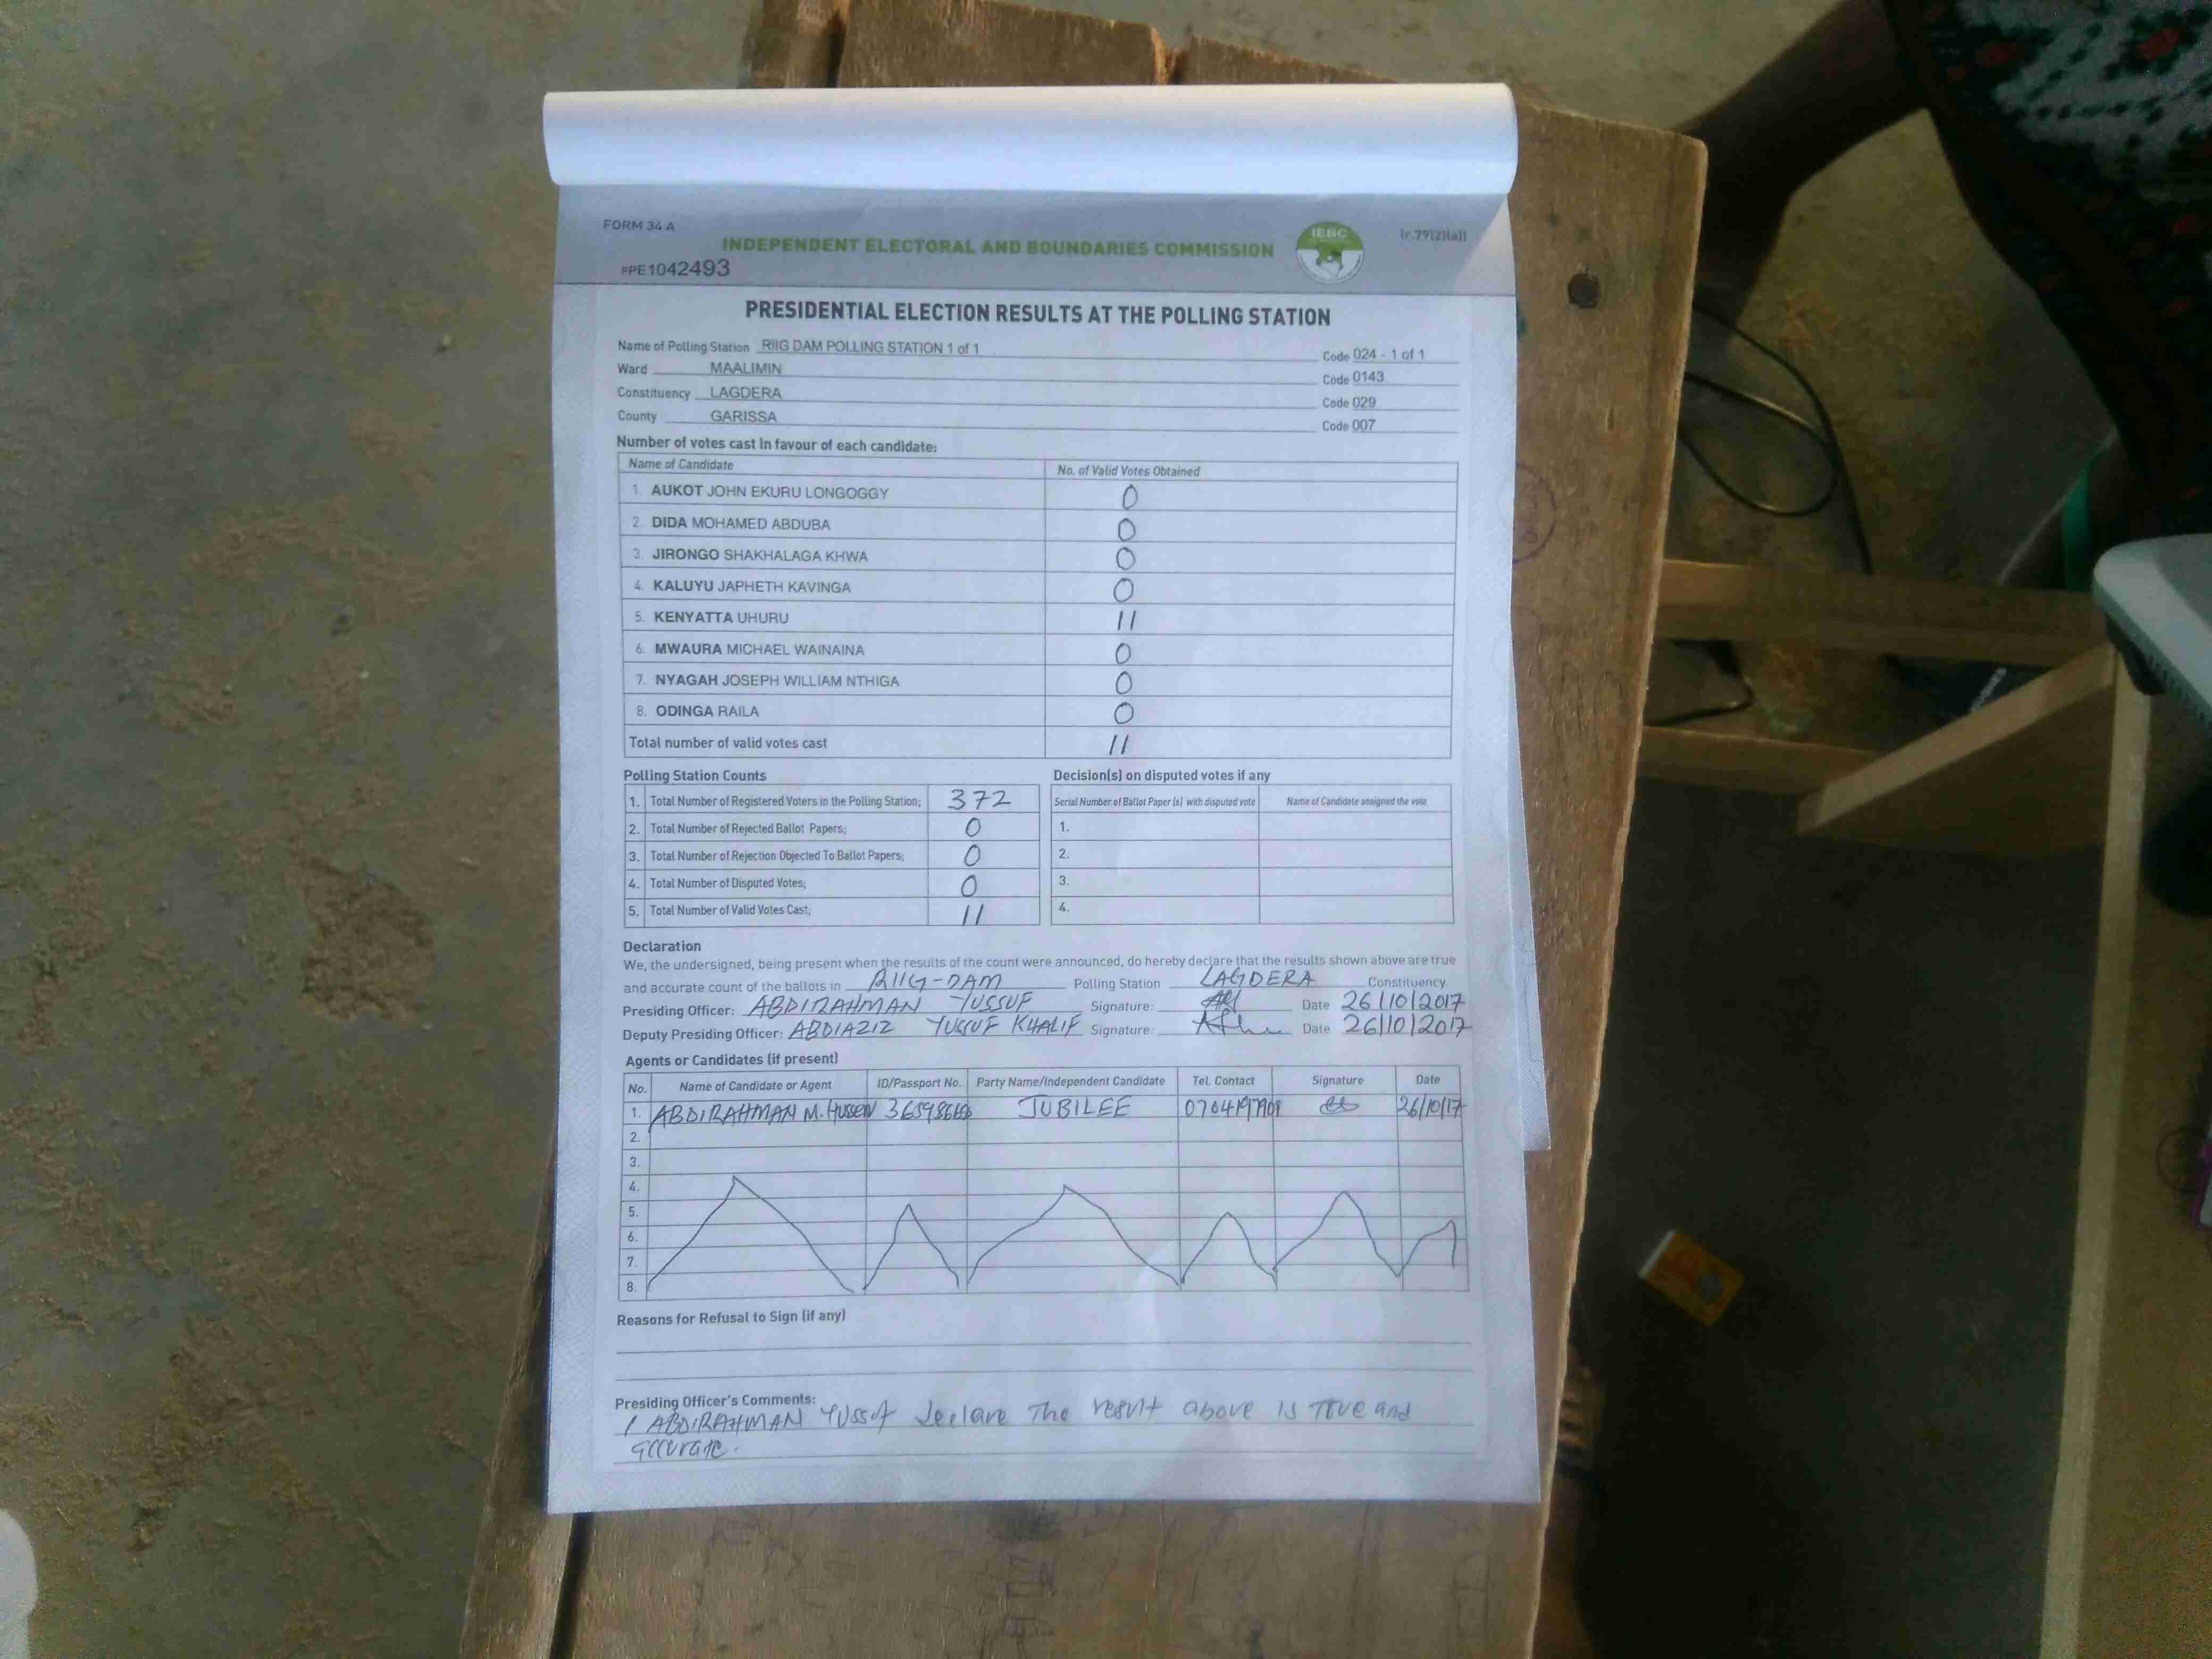 FORM 34 A
1r.79(2)(a)]
IEBC
INDEPENDENT ELECTORAL AND BOUNDARIES COMMISSION
PPE1042493
PRESIDENTIAL ELECTION RESULTS AT THE POLLING STATION
Name of Polling Station RIIG DAM POLLING STATION 1 of 1 Code 024 - 1 of 1
Ward MAALIMIN Code 0143
Constituency LAGDERA Code 029
County GARISSA Code 007
Number of votes cast in favour of each candidate:
Name of Candidate No. of Valid Votes Obtained
1. AUKOT JOHN EKURU LONGOGGY 0
2. DIDA MOHAMED ABDUBA 0
3. JIRONGO SHAKHALAGA KHWA 0
4. KALUYU JAPHETH KAVINGA 0
5. KENYATTA UHURU 11
6. MWAURA MICHAEL WAINAINA 0
7. NYAGAH JOSEPH WILLIAM NTHIGA 0
8. ODINGA RAILA 0
Total number of valid votes cast 11
Polling Station Counts
1. Total Number of Registered Voters in the Polling Station; 372
2. Total Number of Rejected Ballot Papers; 0
3. Total Number of Rejection Objected To Ballot Papers; 0
4. Total Number of Disputed Votes; 0
5. Total Number of Valid Votes Cast; 11
Decision(s) on disputed votes if any
Serial Number of Ballot Paper (s) with disputed vote Name of Candidate assigned the vote
1.
2.
3.
4.
Declaration
We, the undersigned, being present when the results of the count were announced, do hereby declare that the results shown above are true
and accurate count of the ballots in RIIG-DAM Polling Station LAGDERA Constituency
Presiding Officer: ABDIRAHMAN YUSSUF Signature: Date 26/10/2017
Deputy Presiding Officer: ABDIAZIZ YUSSUF KHALIF Signature: Date 26/10/2017
Agents or Candidates (if present)
No. Name of Candidate or Agent ID/Passport No. Party Name/Independent Candidate Tel. Contact Signature Date
1. ABDIRAHMAN M. HUSSEN JUBILEE 26/10/17
2.
3.
4.
5.
6.
7.
8.
Reasons for Refusal to Sign (if any)
Presiding Officer's Comments:
I ABDIRAHMAN Yussuf declare The result above is True and
accurate.